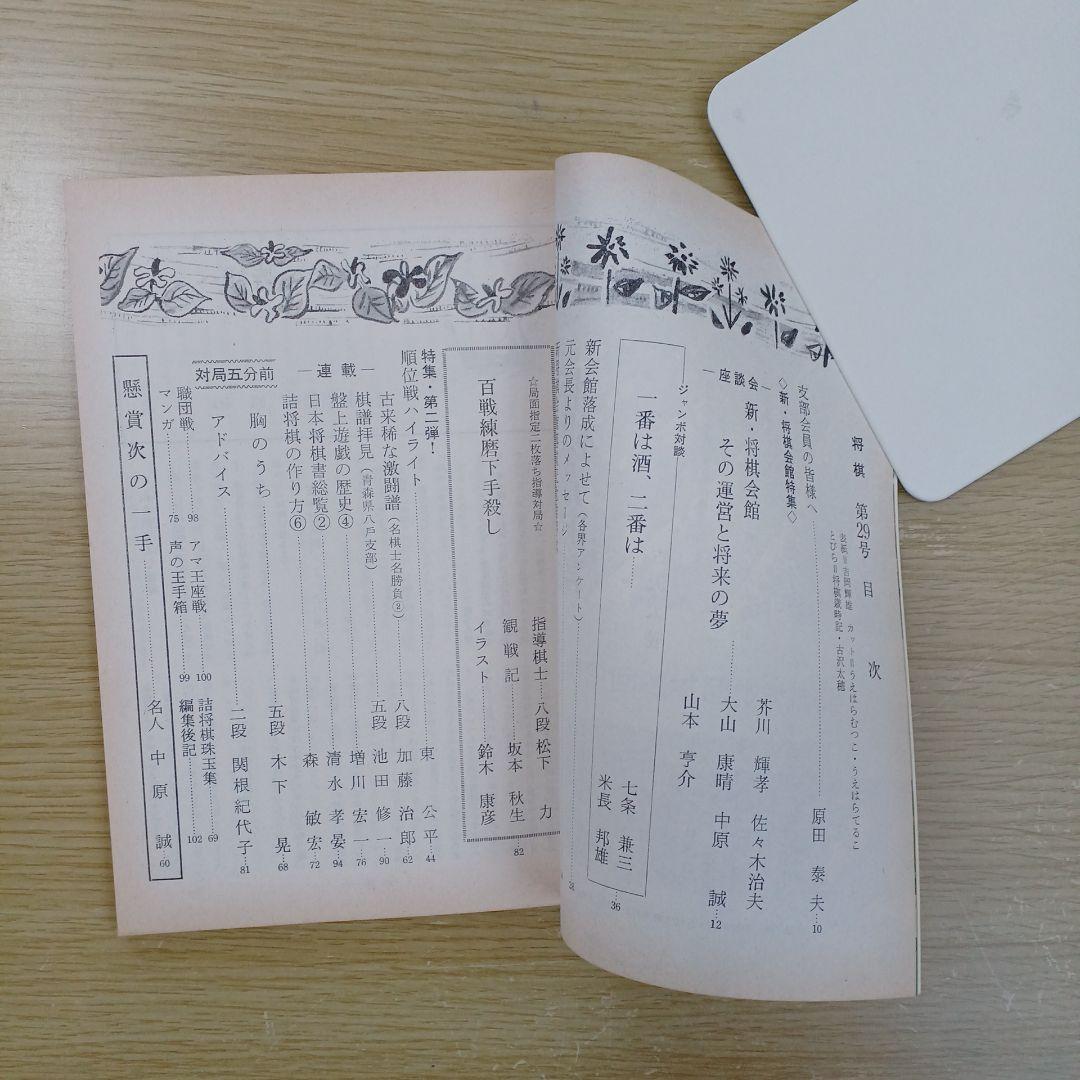 将棋 第29号 目次
表紙＝吉岡輝雄 カット＝うえはらむつこ・うえはらてるこ
とびら＝将棋歳時記・古沢太穂
支部会員の皆様へ……原田泰夫…10
◇新・将棋会館特集◇
―座談会―
新・将棋会館
その運営と将来の夢……
芥川輝孝 佐々木治夫
大山康晴 中原誠…12
山本亨介
ジャンボ対談
一番は酒、二番は……
七条兼三
米長邦雄…36
新会館落成によせて（各界アンケート）
元会長よりのメッセージ……38
☆局面指定二枚落ち指導対局☆
百戦練磨下手殺し
指導棋士…八段 松下力
観戦記……坂本秋生
イラスト……鈴木康彦
82
特集・第二弾！
順位戦ハイライト……東公平…44
古来稀な激闘譜（名棋士名勝負②）……八段 加藤治郎…62
―連載―
棋譜拝見（青森県八戸支部）……五段 池田修一…90
盤上遊戯の歴史④……増川宏一…76
日本将棋書総覧②……清水孝晏…94
詰将棋の作り方⑥……森敏宏…72
対局五分前
胸のうち……五段 木下晃…68
アドバイス……二段 関根紀代子…81
職団戦……98
アマ王座戦……100
詰将棋珠玉集…69
マンガ……75
声の王手箱……99
編集後記……102
懸賞次の一手……名人 中原誠 60